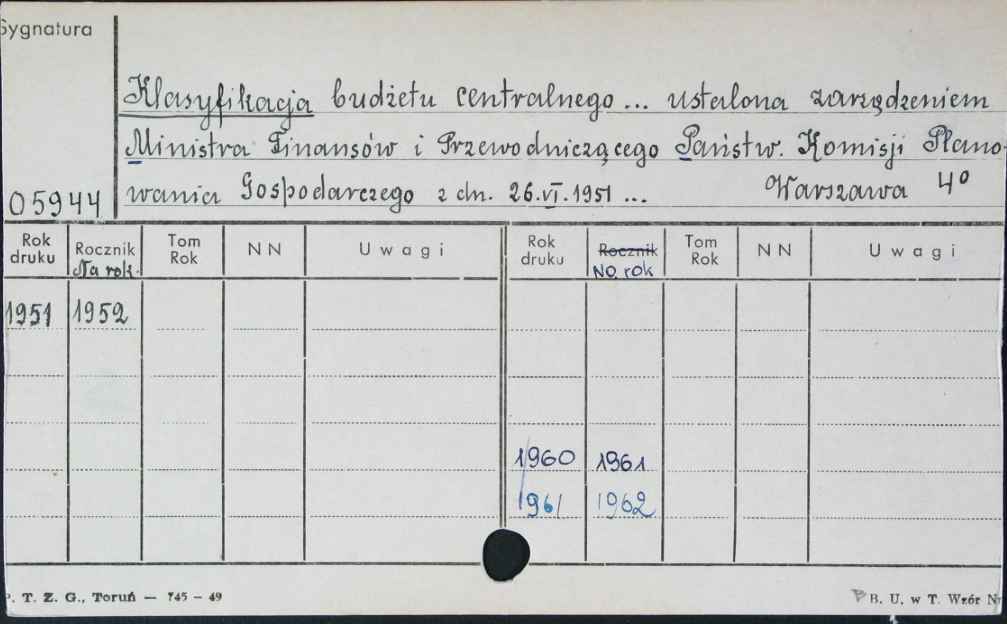 Sygnatura
Klasyfikacja budżetu centralnego ... ustalona zarządzeniem
Ministra Finansów i Przewodniczącego Państw. Komisji Plano-
wania Gospodarczego z dn. 26.VI.1951 ... Warszawa 4°
05944
Rok druku Rocznik Na rok Tom Rok NN Uwagi Rok druku Rocznik Na rok Tom Rok NN Uwagi
1951 1952
1960 1961
1961 1962
P. T. Z. G., Toruń — 745 — 49 B. U. w T. Wzór Nr